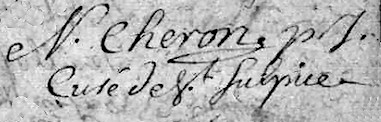 N. Cheron, p.
Curé de St Sulpice